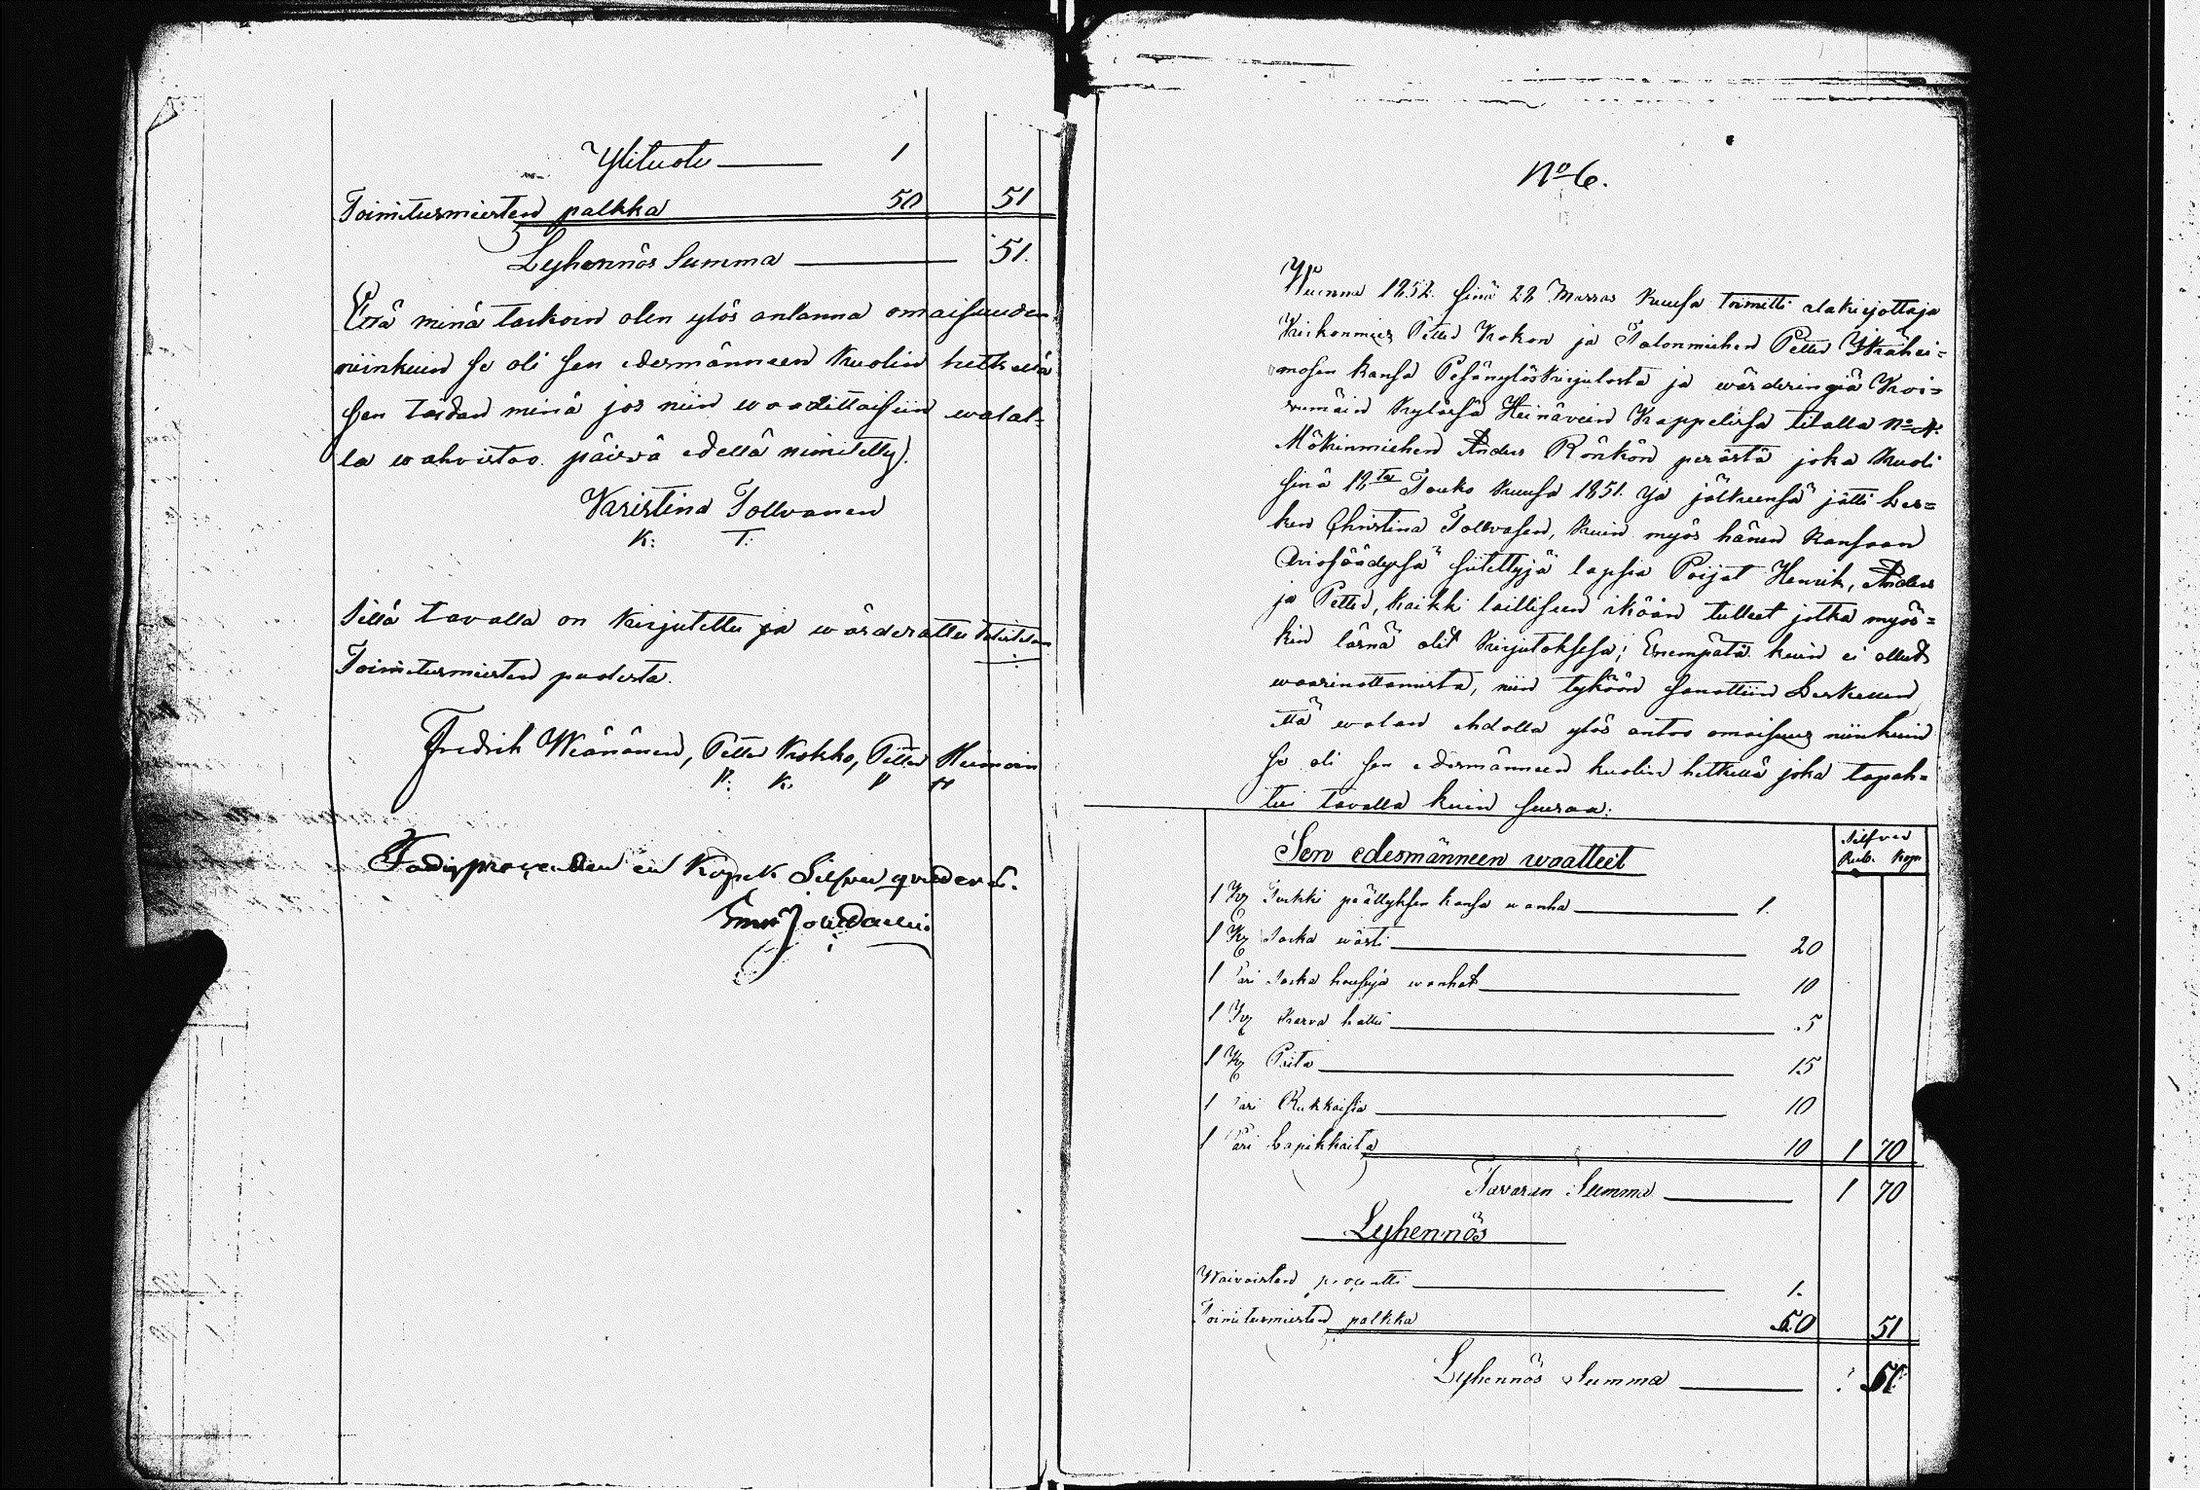 Ylituotu 1
Toimitusmiesten palkka 50 51
Lyhennös Summa 51.
Että minä tarkoin olen ylös antanna omaisuuden
niinkuin se oli sen edesmänneen kuolin hetkellä
sen taidan minä jos niin waadittaisiin walal-
la wahvistaa. päivä edellä nimitetty.
Karistina Tollvanen
K: T:
Sillä tavalla on kirjutettu ja wärderattu
Toimitusmiesten puolesta.
Fredrik Wäänänen, Petter Kokko, Petter Heimoin
P. K. P H
Fattigprocenten en Kopek Silfver qvitteras.
N:o 6.
Wuonna 1852. sinä 28 Marras kuusa toimitti alakirjottaja
Kirikonmies Petter Kokon ja Talonmiehen Petter Ikähei=
mosen kansa Pesänylöskirjutosta ja wärderingiä Koi=
rumäin kylässä Heinävein Kappelissa tilalla N:o 4:
Mökinmiehen Anders Rönkön perästä joka kuoli
sinä 12:ta Touko kuusa 1851. ja jälkeensä jätti Les=
ken Christina Tollvasen, kuin myös hänen kansaan
Aviosäädysä siitettyjä lapsia Poijat Henrik, Anders
ja Petter, kaikki lailliseen ikään tulleet jotka myös=
kin läsnä olit kirjutoksesa; Enempätä kuin ei ollut
waarinottamista, niin tyköön sanottiin Leskellen
että walan ehdolla ylös antaa omaisuus niinkuin
se oli sen edesmänneen kuolin hetkellä joka tapah=
tui tavalla kuin seuraa:
Sen edesmänneen waatteet
Silfver
Rub. Kop
1 Kp Turkki päällyksen kansa wanha 1.
1 Kp Sarka wästi 20
1 Pari Sarka housuja wanhat 10
1 Kp Karva hattu 5
1 Kp Paita 15
1 Pari Rukkaisia 10
1 Pari Lapikkaita 10 1 70
Tavaran Summa 1 70
Lyhennös
Waivaisten procentti 1.
Toimitusmiesten palkka 50 51
Lyhennös Summa 51